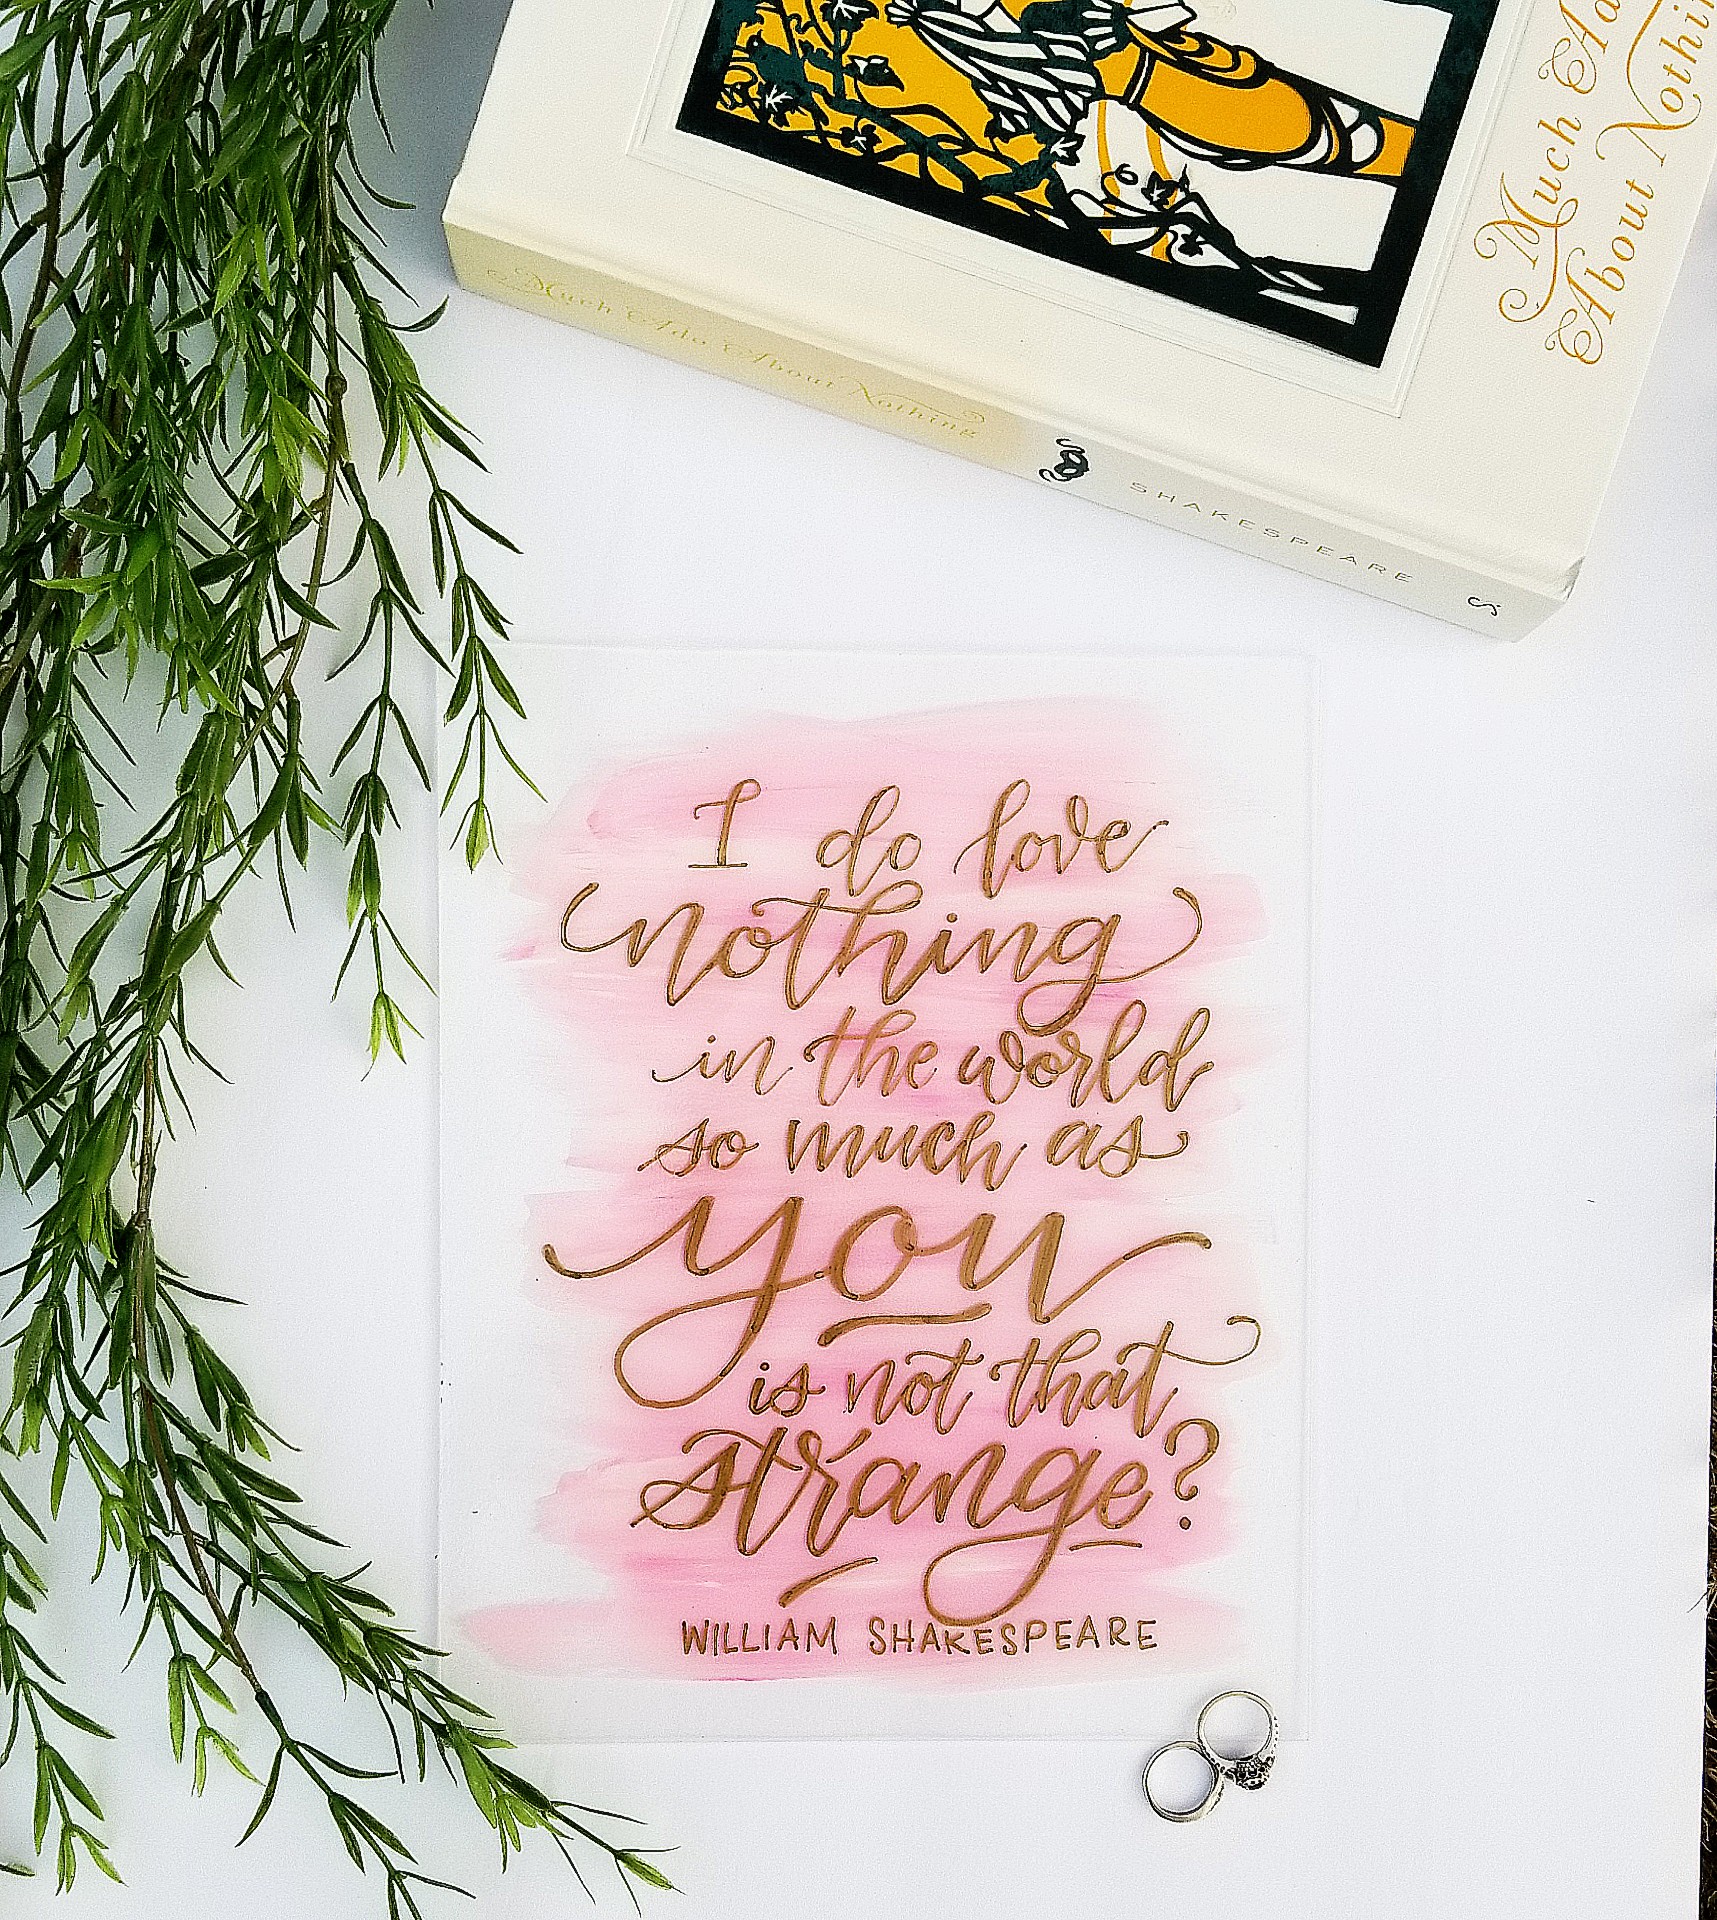 Much Ado
About Nothing
Much Ado About Nothing
SHAKESPEARE
I do love
nothing
in the world
so much as
you
is not that
strange?
WILLIAM SHAKESPEARE